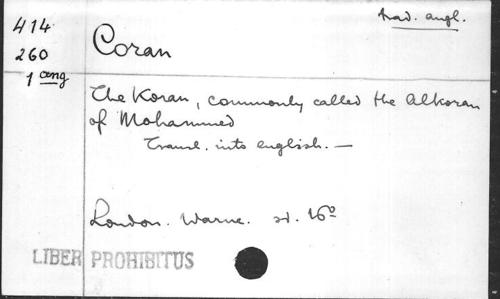 trad. angl.
414
260
1 ang
Coran
The Koran, commonly called the Alkoran
of Mohammed
Transl. into english. —
London. Warne. sd. 16º
LIBER PROHIBITUS